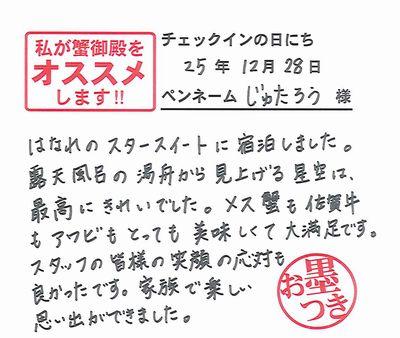 私が蟹御殿を
オススメ
します!!
チェックインの日にち
25年12月28日
ペンネーム じゅたろう 様
はなれのスタースイートに宿泊しました。
露天風呂の湯舟から見上げる星空は、
最高にきれいでした。メス蟹も佐賀牛
もアワビもとっても美味しくて大満足です。
スタッフの皆様の笑顔の応対も
良かったです。家族で楽しい
思い出ができました。
お墨
つき